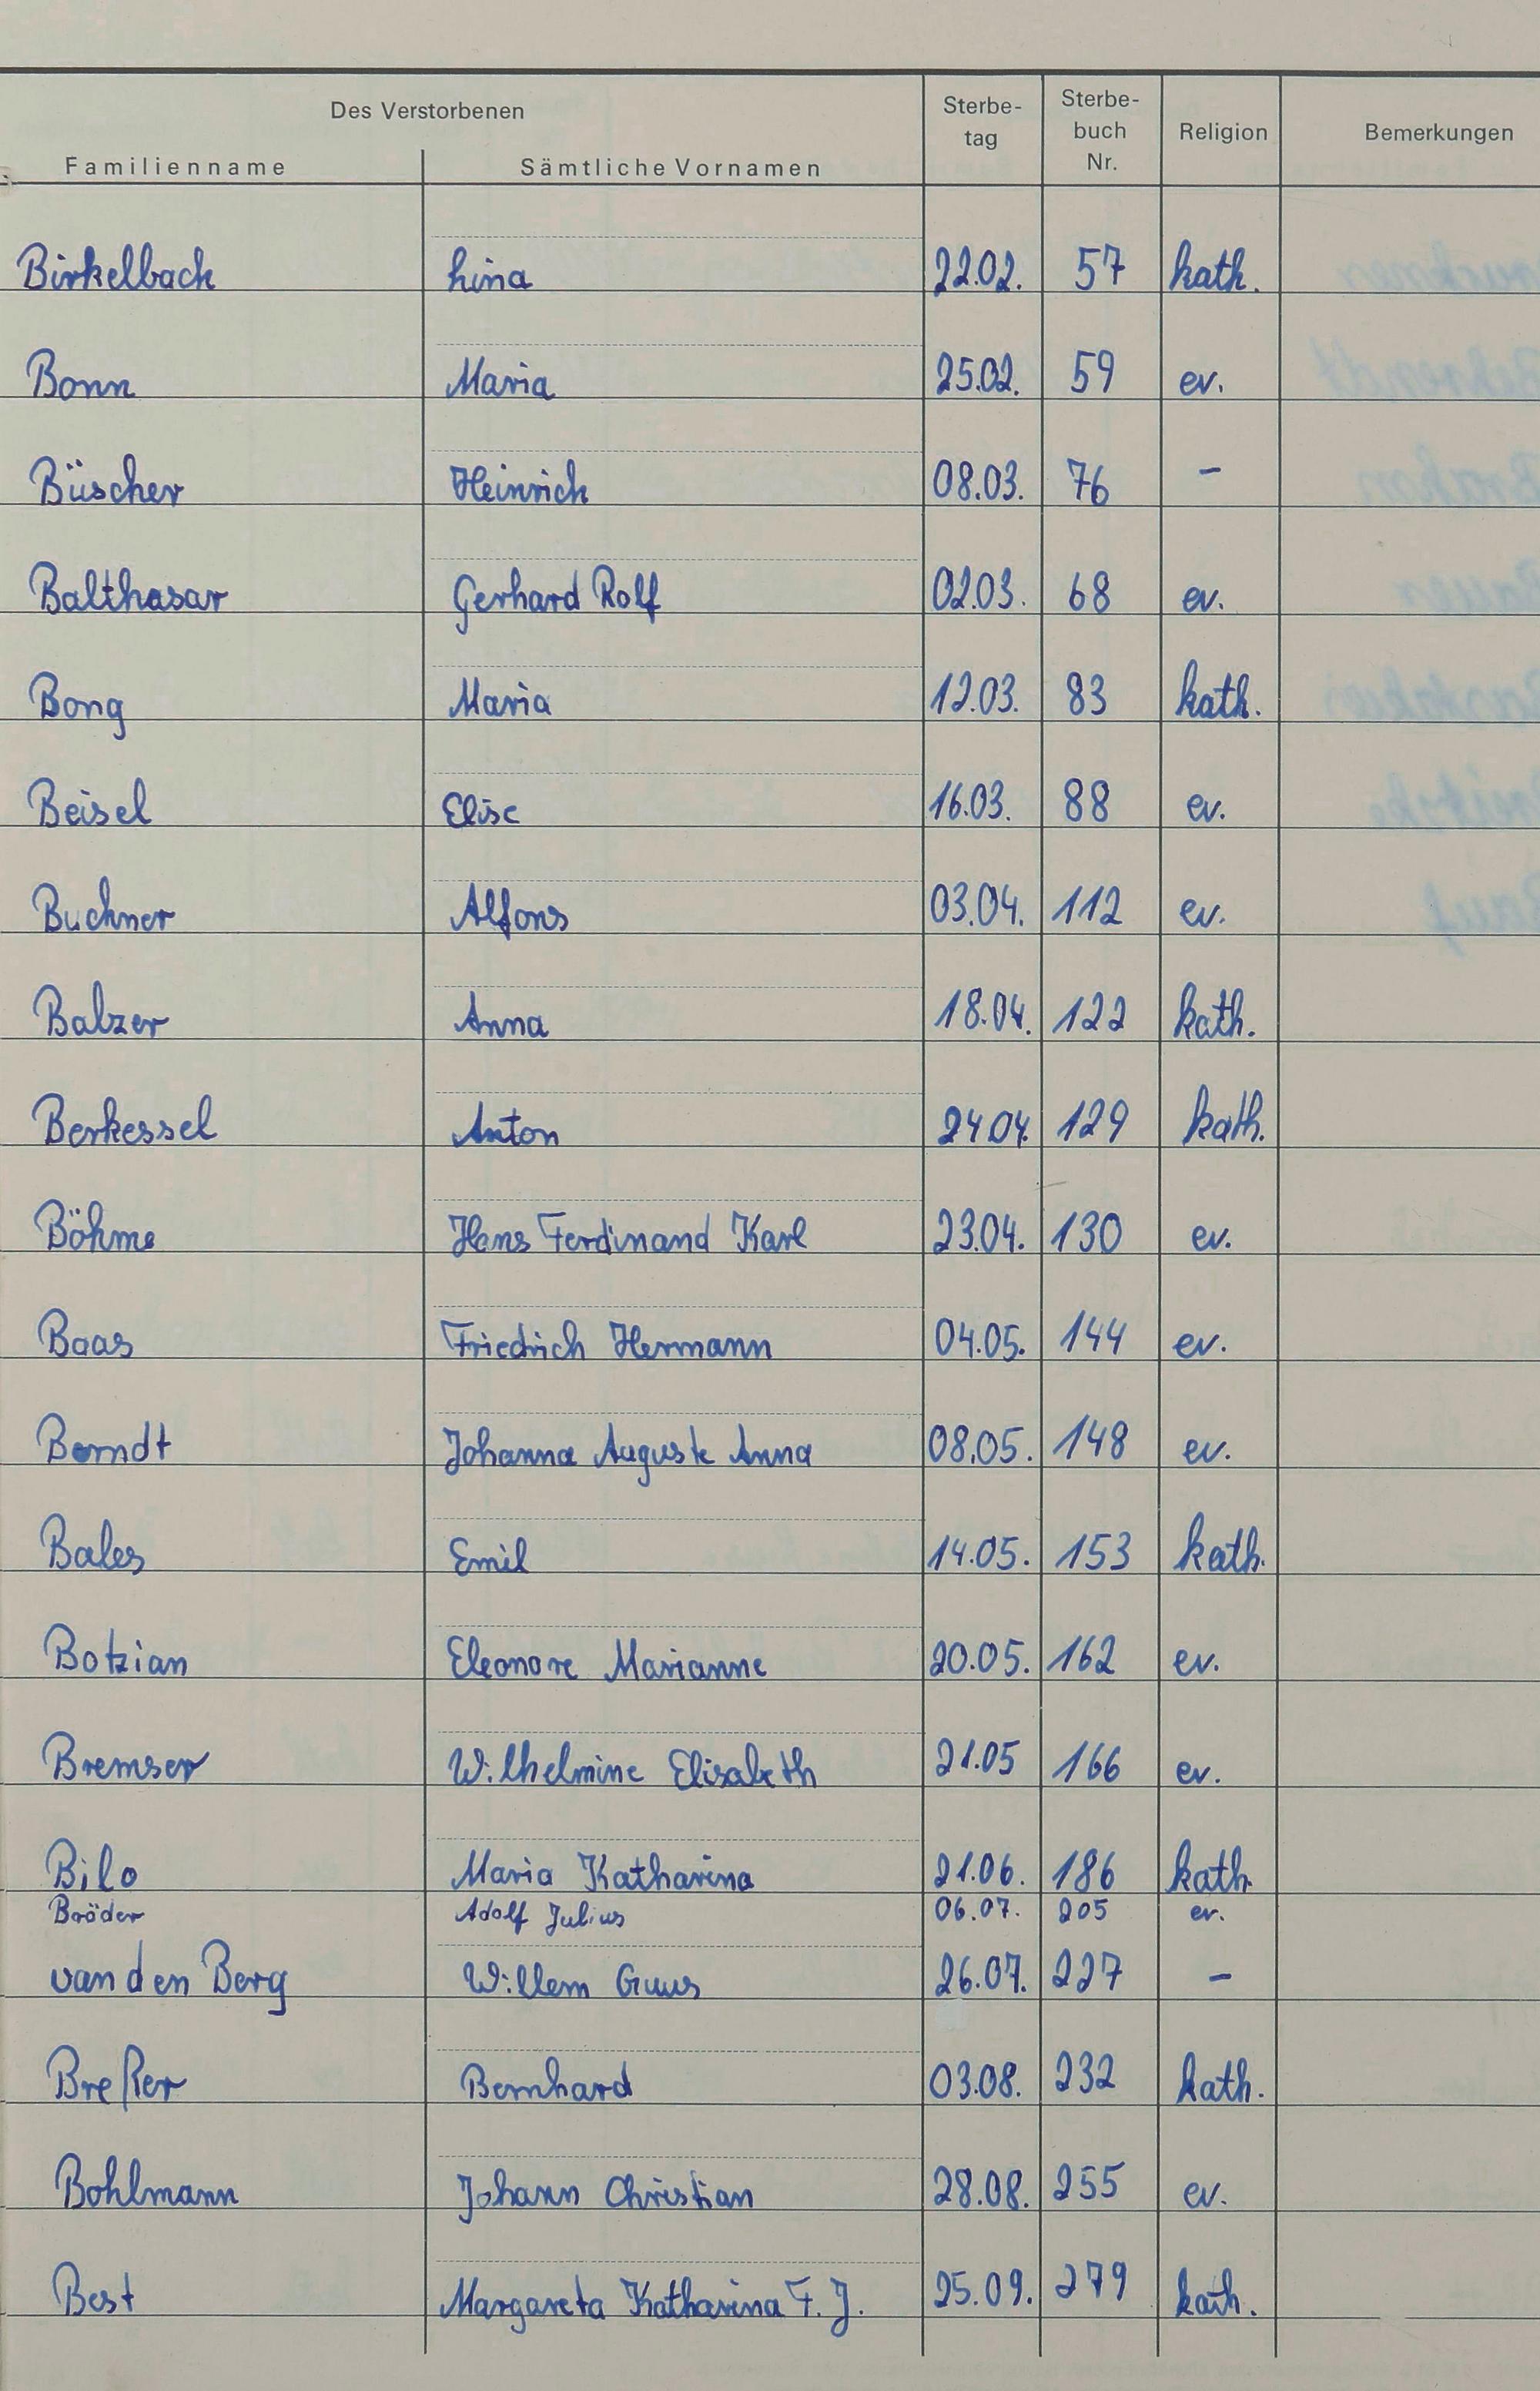 Des Verstorbenen
Familienname Sämtliche Vornamen Sterbe-tag Sterbe-buch Nr. Religion Bemerkungen
Birkelbach Lina 22.02. 57 kath.
Bonn Maria 25.02. 59 ev.
Büscher Heinrich 08.03. 76 –
Balthasar Gerhard Rolf 02.03. 68 ev.
Bong Maria 12.03. 83 kath.
Beisel Elise 16.03. 88 ev.
Buchner Alfons 03.04. 112 ev.
Balzer Anna 18.04. 122 kath.
Berkessel Anton 24.04. 129 kath.
Böhme Hans Ferdinand Karl 23.04. 130 ev.
Baas Friedrich Hermann 04.05. 144 ev.
Berndt Johanna Auguste Anna 08.05. 148 ev.
Bales Emil 14.05. 153 kath.
Botzian Eleonore Marianne 20.05. 162 ev.
Bremser Wilhelmine Elisabeth 21.05 166 ev.
Bilo Maria Katharina 21.06. 186 kath.
Bröder Adolf Julius 06.07. 205 ev.
van den Berg Willem Guus 26.07. 227 –
Breßer Bernhard 03.08. 232 kath.
Bohlmann Johann Christian 28.08. 255 ev.
Best Margareta Katharina F. J. 25.09. 279 kath.